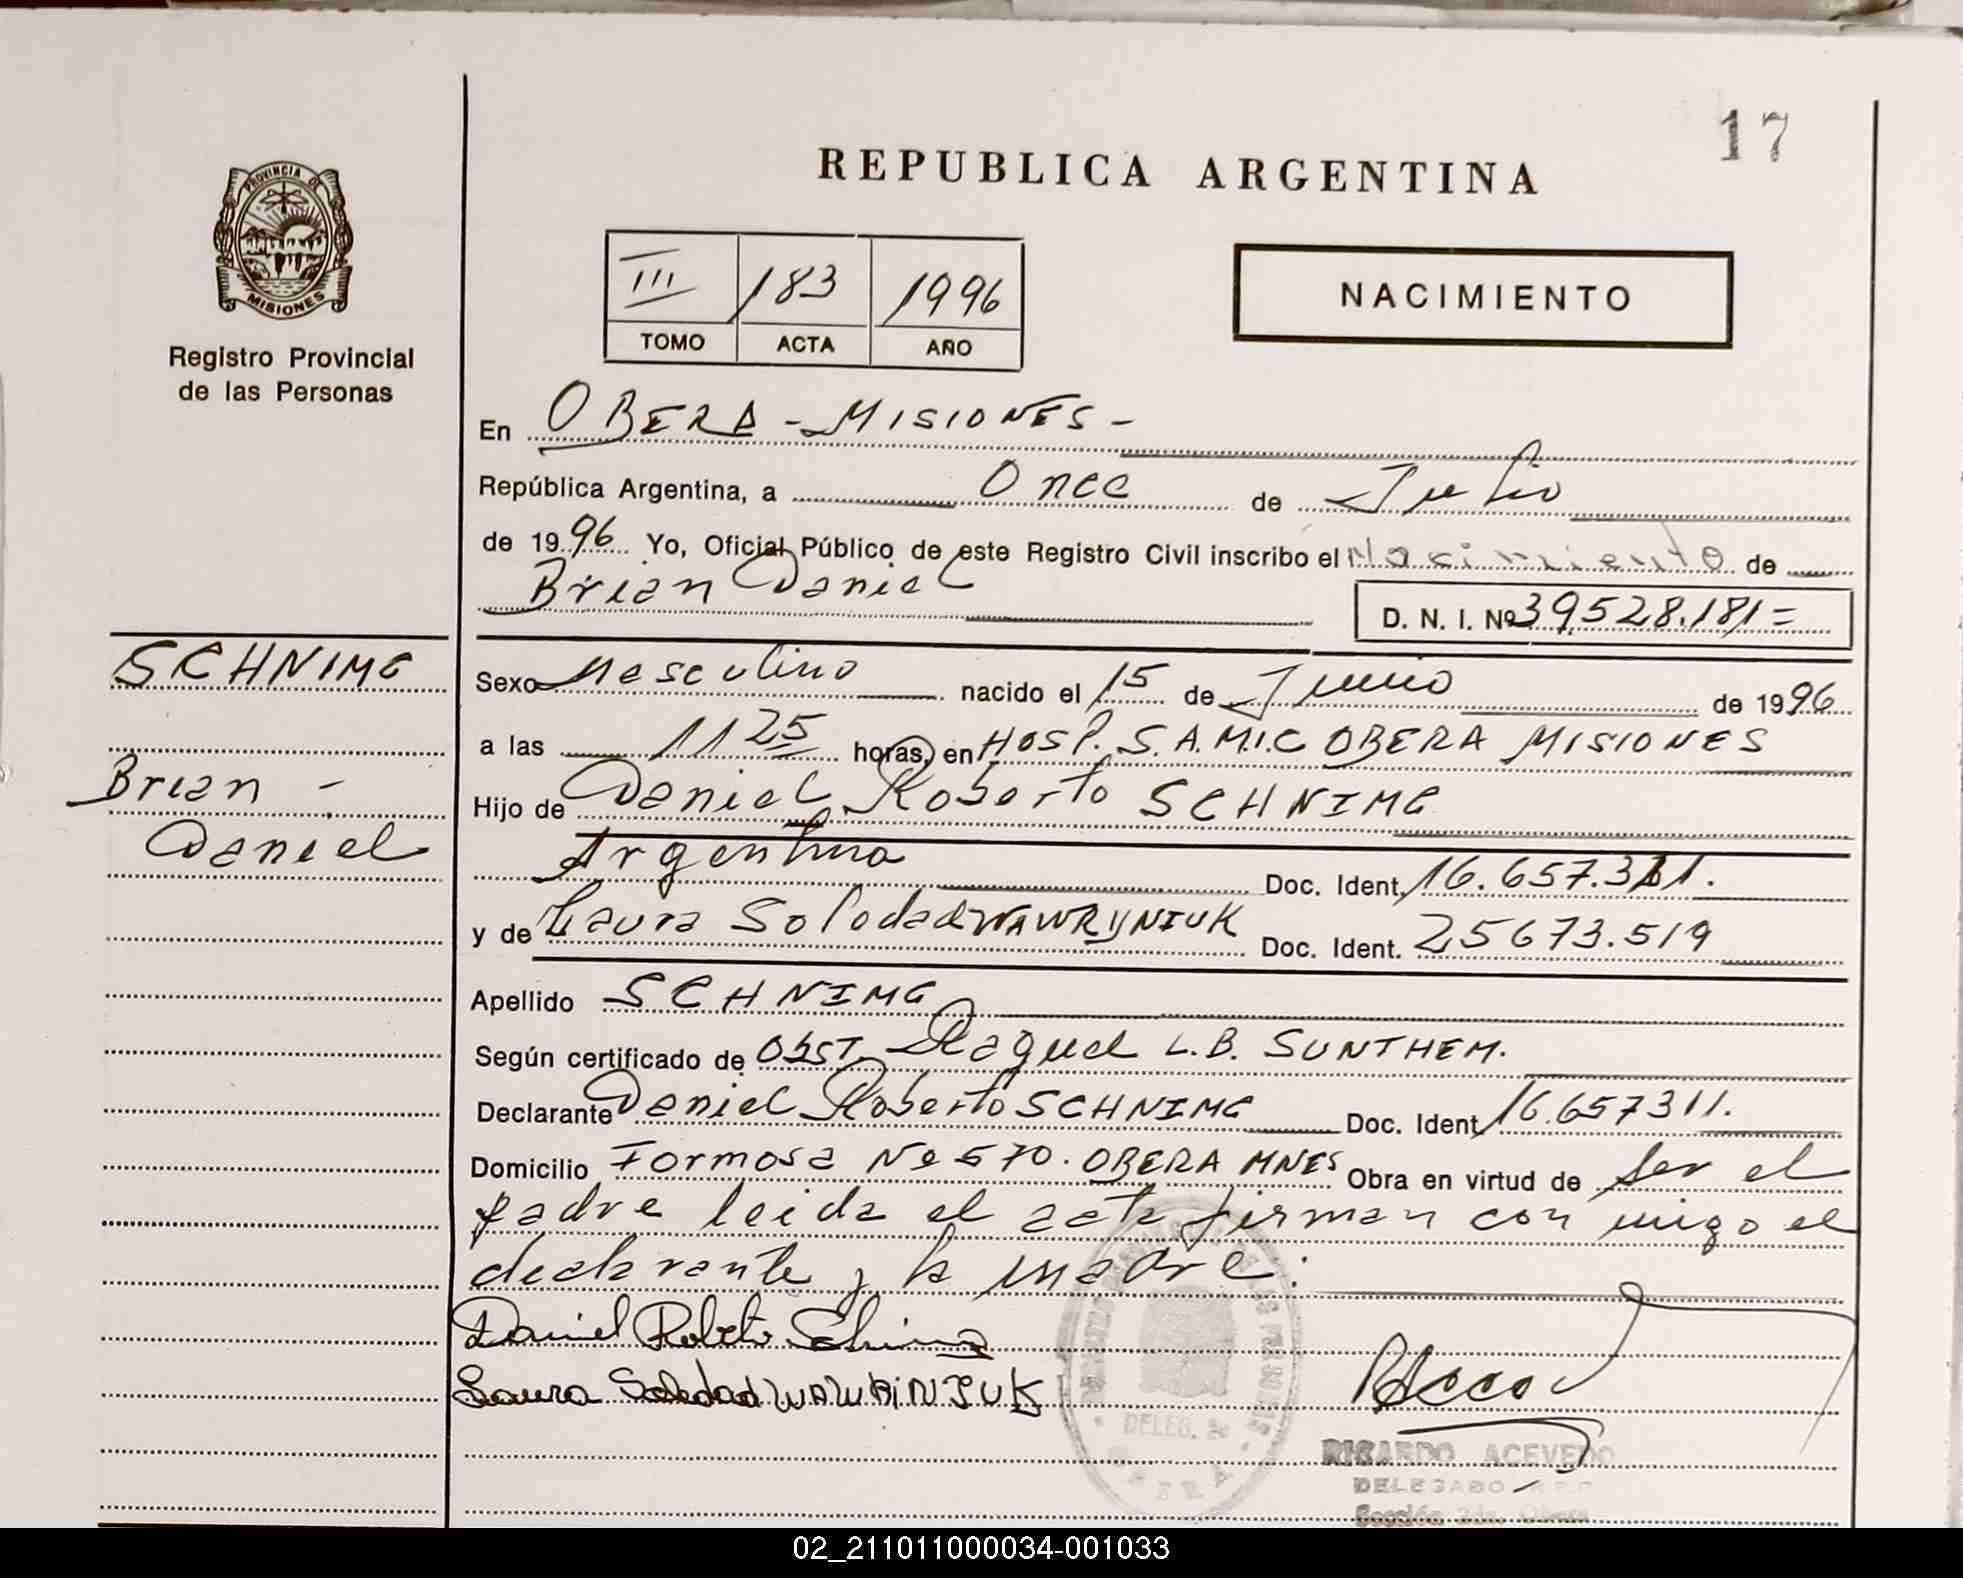 17
REPUBLICA ARGENTINA
PROVINCIA DE
MISIONES
Registro Provincial
de las Personas
III 183 1996
TOMO ACTA AÑO
NACIMIENTO
En OBERA - MISIONES -
República Argentina, a Once de Julio
de 1996 Yo, Oficial Público de este Registro Civil inscribo el Nacimiento de
Brian Daniel
D. N. I. Nº 39.528.181=
SCHNIMG
Brian -
Daniel
Sexo Masculino nacido el 15 de Junio de 1996
a las 11 25 horas, en HOSP. S.A.M.I.C OBERA MISIONES
Hijo de Daniel Roberto SCHNIMG
Argentina Doc. Ident. 16.657.311.
y de Laura Soledad WAWRYNIUK Doc. Ident. 25673.519
Apellido SCHNIMG
Según certificado de Obst. Raquel L.B. SUNTHEM.
Declarante Daniel Roberto SCHNIMG Doc. Ident. 16.657311.
Domicilio Formosa Nº 570. OBERA MNES Obra en virtud de ser el
padre leida el acta firman con migo el
declarante y la madre:
Daniel Roberto Schnimg
Laura Soledad WAWRINIUK
DELEG. 2a
OBERA
RICARDO ACEVEDO
DELEGADO R.P.P
Sección 2da. Obera
02_211011000034-001033